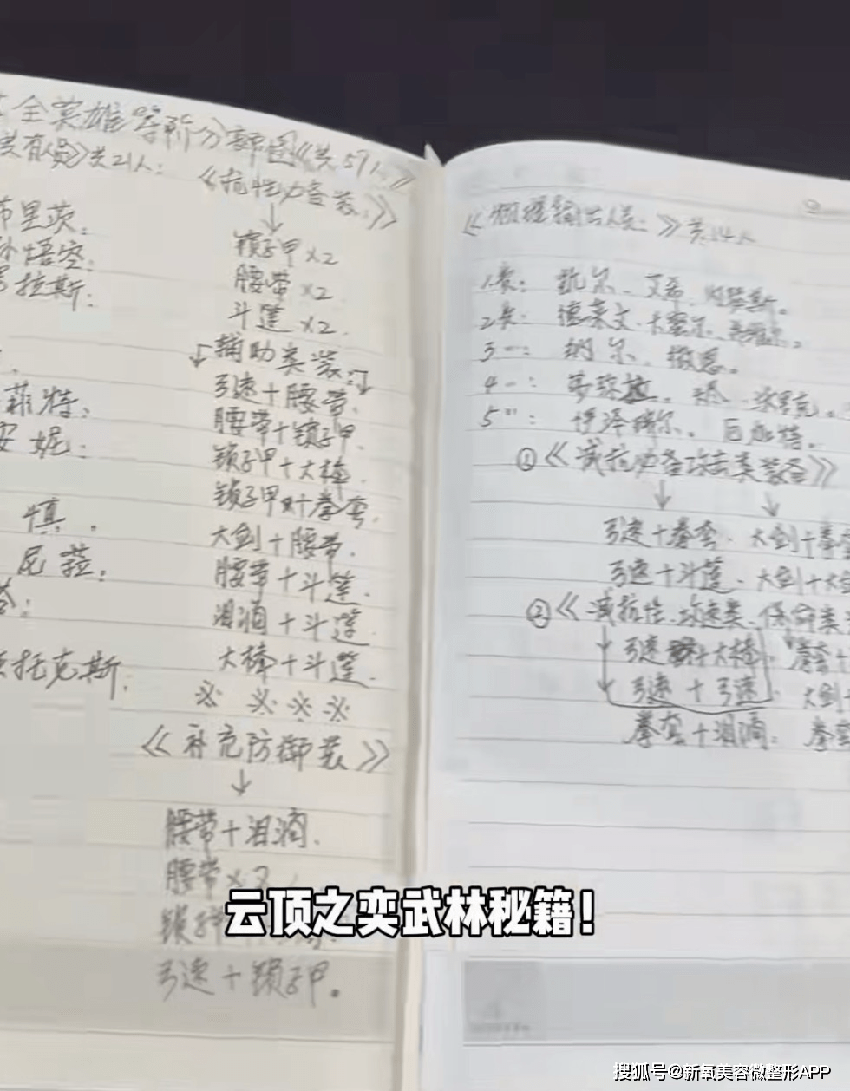 全英雄等阶分部图《共59人》
类有人员》共21人：
《抗性力备装：》
布里茨：
孙悟空：
拉斯：
菲特：
安妮：
慎。
尼菈：
托克斯。
锁子甲×2
腰带×2
斗篷×2.
辅助类装：
弓速+腰带.
腰带+锁子甲.
锁子甲+大棒
锁子甲+拳套.
大剑+腰带.
腰带+斗篷.
泪滴+斗篷
大棒+斗篷.
※ ※ ※ ※
《补充防御装》
腰带+泪滴.
腰带×2
弓速+锁子甲。
《物理输出人员：》共14人
1类：凯尔、艾希、
2类：德莱文.
3一：纳尔、
4一：
5"：伊泽瑞尔、厄加特.
①《减抗力备攻击类装备》
弓速+拳套、大剑+拳套
弓速+斗篷、大剑+大剑
②《减抗性.攻速类.保命类
弓速+大棒. 拳套+
弓速+弓速. 大剑+
拳套+泪滴. 拳套
云顶之奕武林秘籍！
搜狐号@新氧美容微整形APP